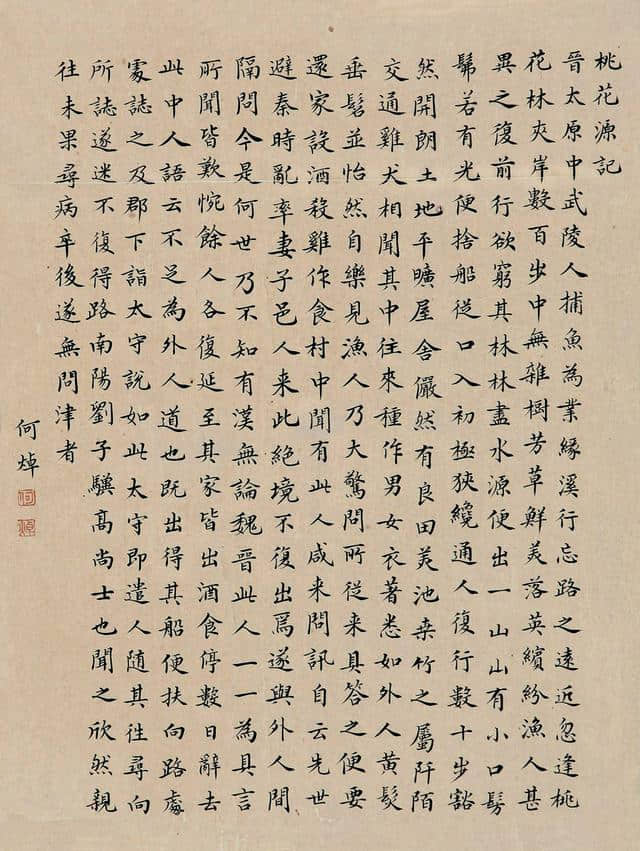 桃花源記
晉太原中武陵人捕魚為業緣溪行忘路之遠近忽逢桃
花林夾岸數百步中無雜樹芳草鮮美落英繽紛漁人甚
異之復前行欲窮其林林盡水源便出一山山有小口髣
髴若有光便捨船從口入初極狹纔通人復行數十步豁
然開朗土地平曠屋舍儼然有良田美池桑竹之屬阡陌
交通雞犬相聞其中往來種作男女衣著悉如外人黃髮
垂髫並怡然自樂見漁人乃大驚問所從来具答之便要
還家設酒殺雞作食村中聞有此人咸来問訊自云先世
避秦時亂率妻子邑人来此絕境不復出焉遂與外人間
隔問今是何世乃不知有漢無論魏晉此人一一為具言
所聞皆歎惋餘人各復延至其家皆出酒食停數日辭去
此中人語云不足為外人道也既出得其船便扶向路處
處誌之及郡下詣太守說如此太守即遣人隨其往尋向
所誌遂迷不復得路南陽劉子驥高尚士也聞之欣然親
往未果尋病卒後遂無問津者
何焯